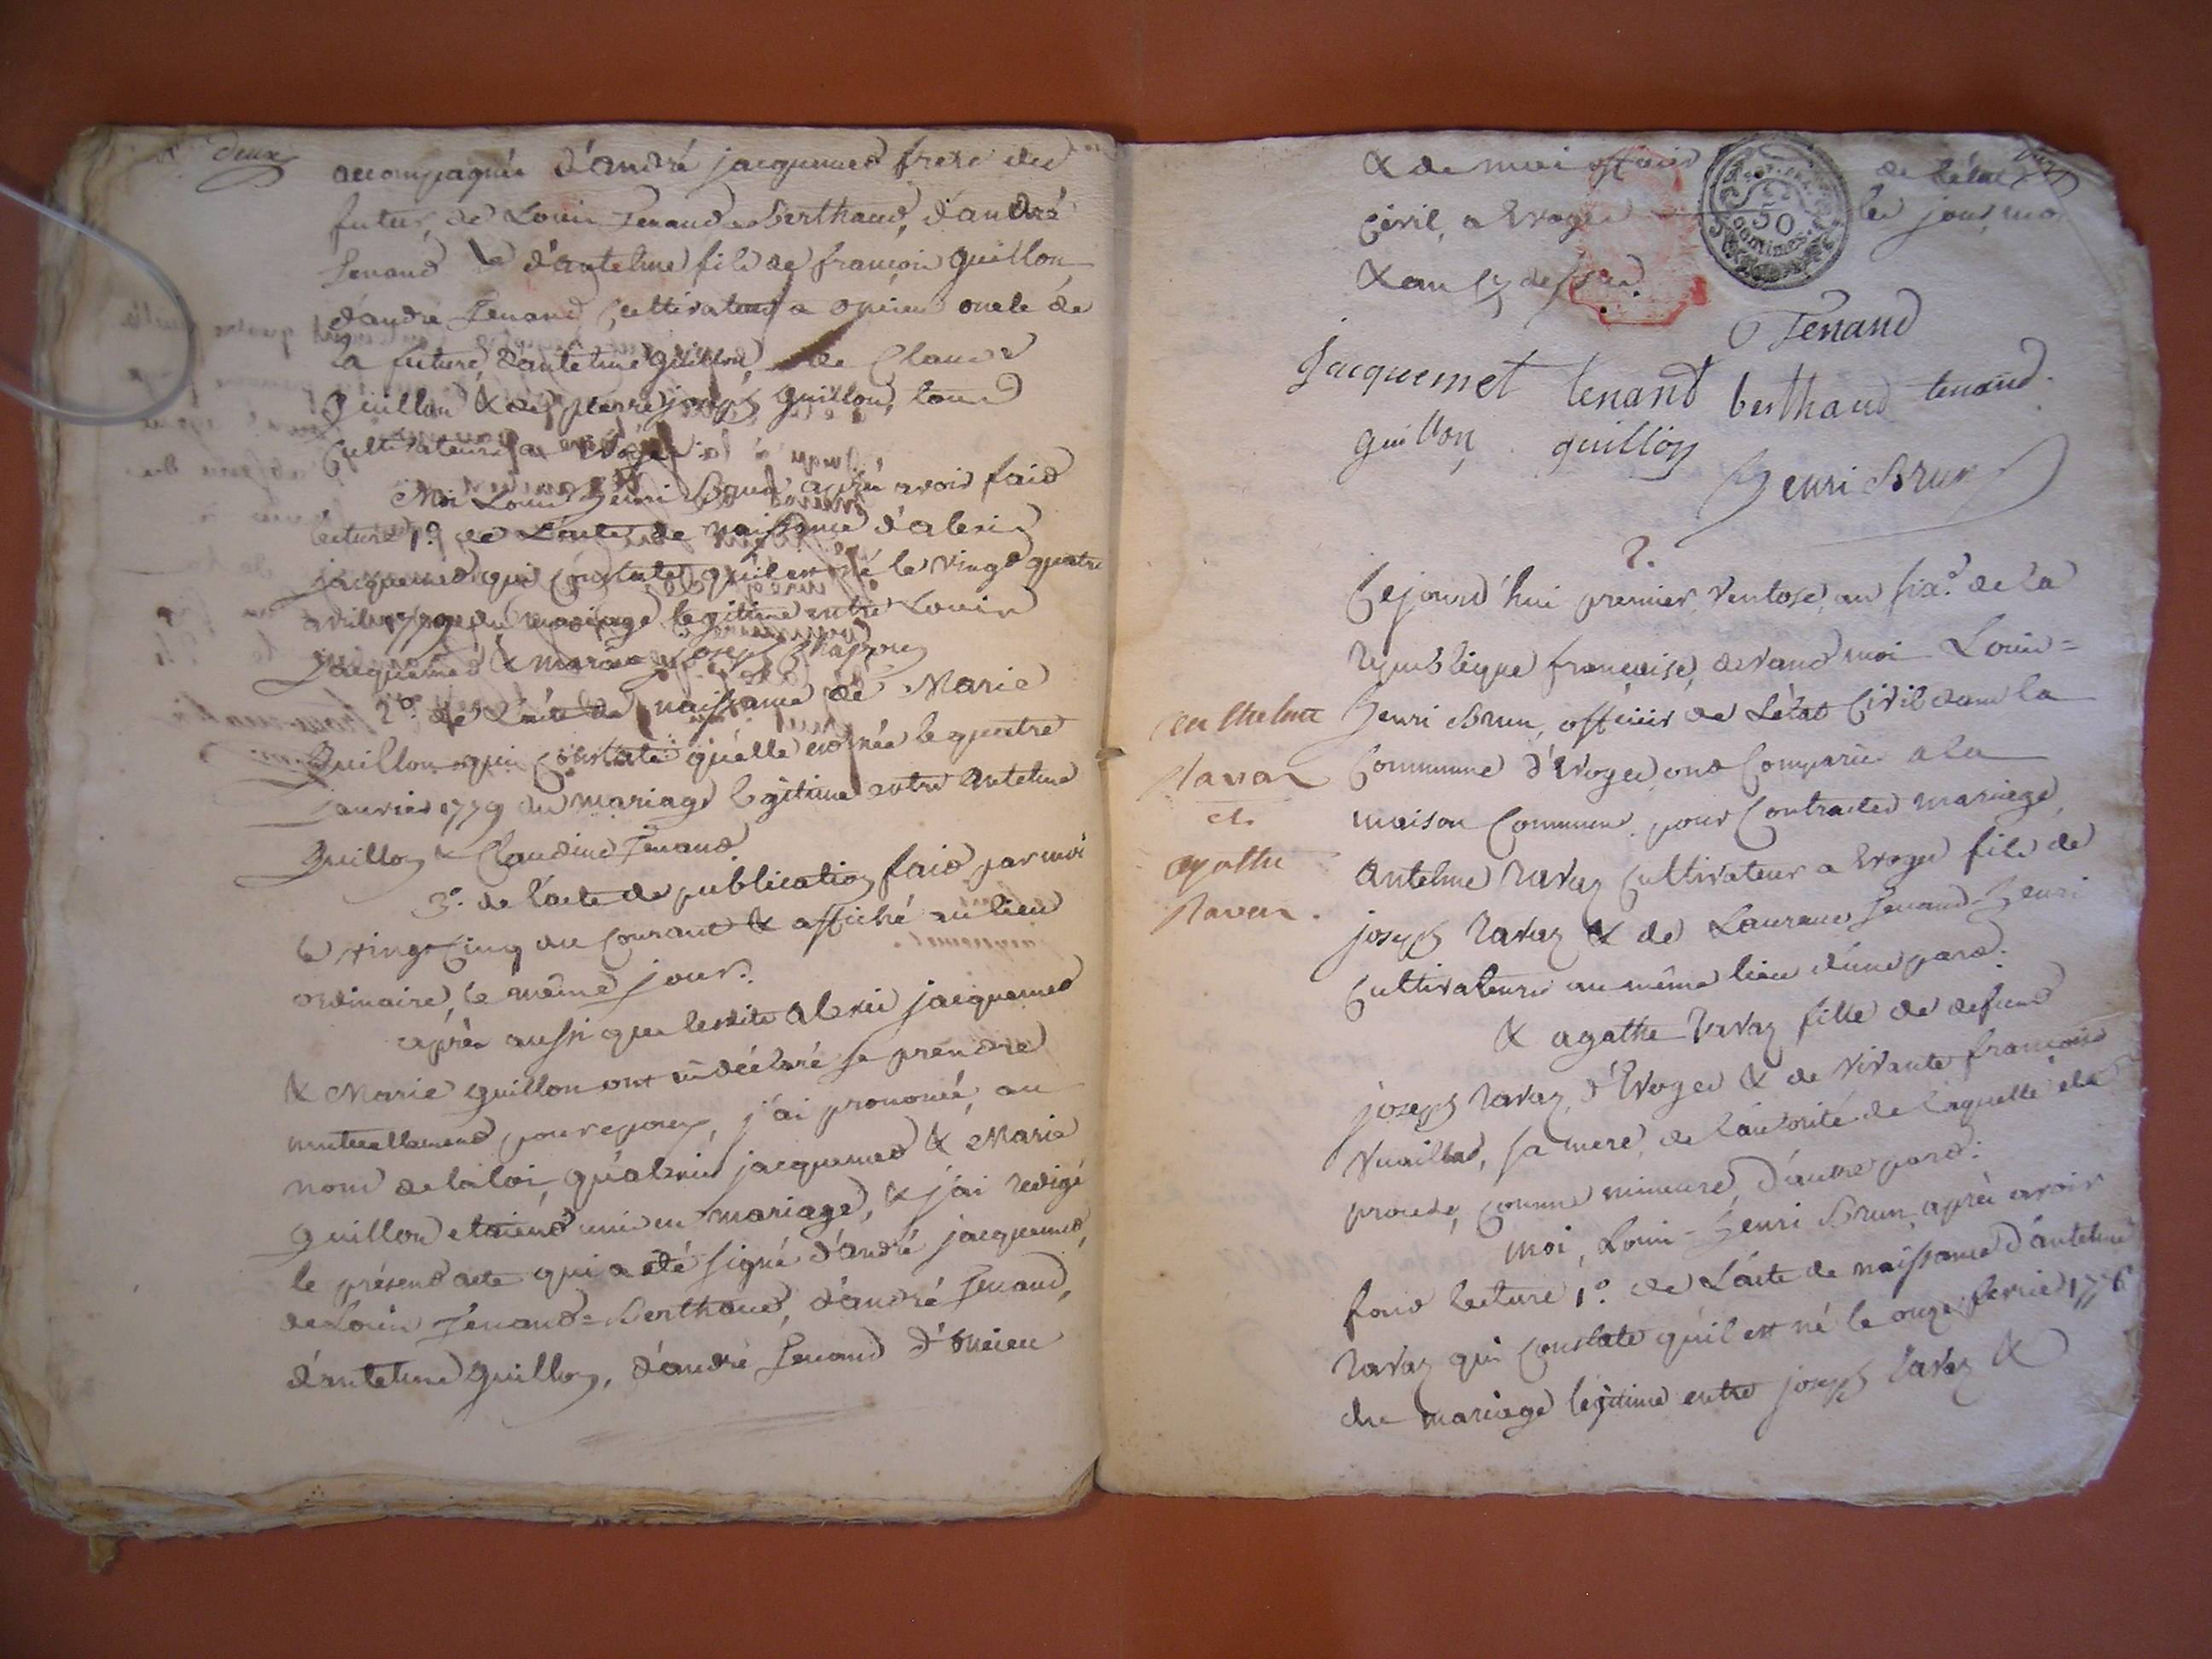 deux
accompagnés d'andré jacquemet frere du
futur, de Louis Tenand-berthaud, d'andré
Tenand & d'antelme fils de françois guillon
d'andré Tenand Cultivateur a onsieu oncle de
La future, d'antelme guillon, de Claude
Guillon & de pierre joseph guillon, tous
Cultivateurs a Evoges
Moi Louis henri Brun après avoir fait
lecture 1º. de L'acte de naissance d'alexis
jacquemet qui constate qu'il est né le vingt quatre
avril du mariage legitime entre Louis
jacquemet & marie joseph
2º. de L'acte de naissance de Marie
Guillon qui constate qu'elle est née le quatre
janvier 1779 du mariage legitime entre antelme
Guillon & Claudine Tenand.
3º. de l'acte de publication fait par moi
le vingt cinq du courant & affiché au lieu
ordinaire, le même jour.
après aussi que lesdits alexis jacquemet
& Marie guillon ont déclaré se prendre
mutuellement pour epoux, j'ai prononcé, au
nom de la loi, qu'alexis jacquemet & Marie
guillon etoient unis en mariage, & j'ai redigé
le présent acte qui a été signé d'andré jacquemet,
de Louis Tenand=Berthaud, d'andré Tenand,
d'antelme guillon, d'andré Tenand d'onsieu
& de moi officier de l'état
Civil, a Evoges les jour, mois
& an cy dessus.
50
centimes
Tenand
Jacquemet tenand berthaud tenand.
guillon guillon
henri Brun
2.
Cejourd'hui premier Ventose, an six.e de la
republique française, devant moi Louis=
henri Brun, officier de L'état Civil dans la
Commune d'Evoges ont Comparu a la
maison Commune pour Contracter mariage,
anthelme
Ravaz
et
agathe
Ravaz.
Antelme ravaz Cultivateur a Evoges fils de
joseph ravaz & de Laurence Tenand-henri
Cultivateurs au même lieu d'une part.
& agathe ravaz fille de defunt
joseph ravaz, d'Evoges & de vivante françoise
Vuaillat, sa mere, de l'autorité de laquelle elle
procede, comme mineure, d'autre part.
moi, Louis-henri Brun, après avoir
fait lecture 1º. de L'acte de naissance d'antelme
ravaz qui constate qu'il est né le onze
du mariage légitime entre joseph ravaz &